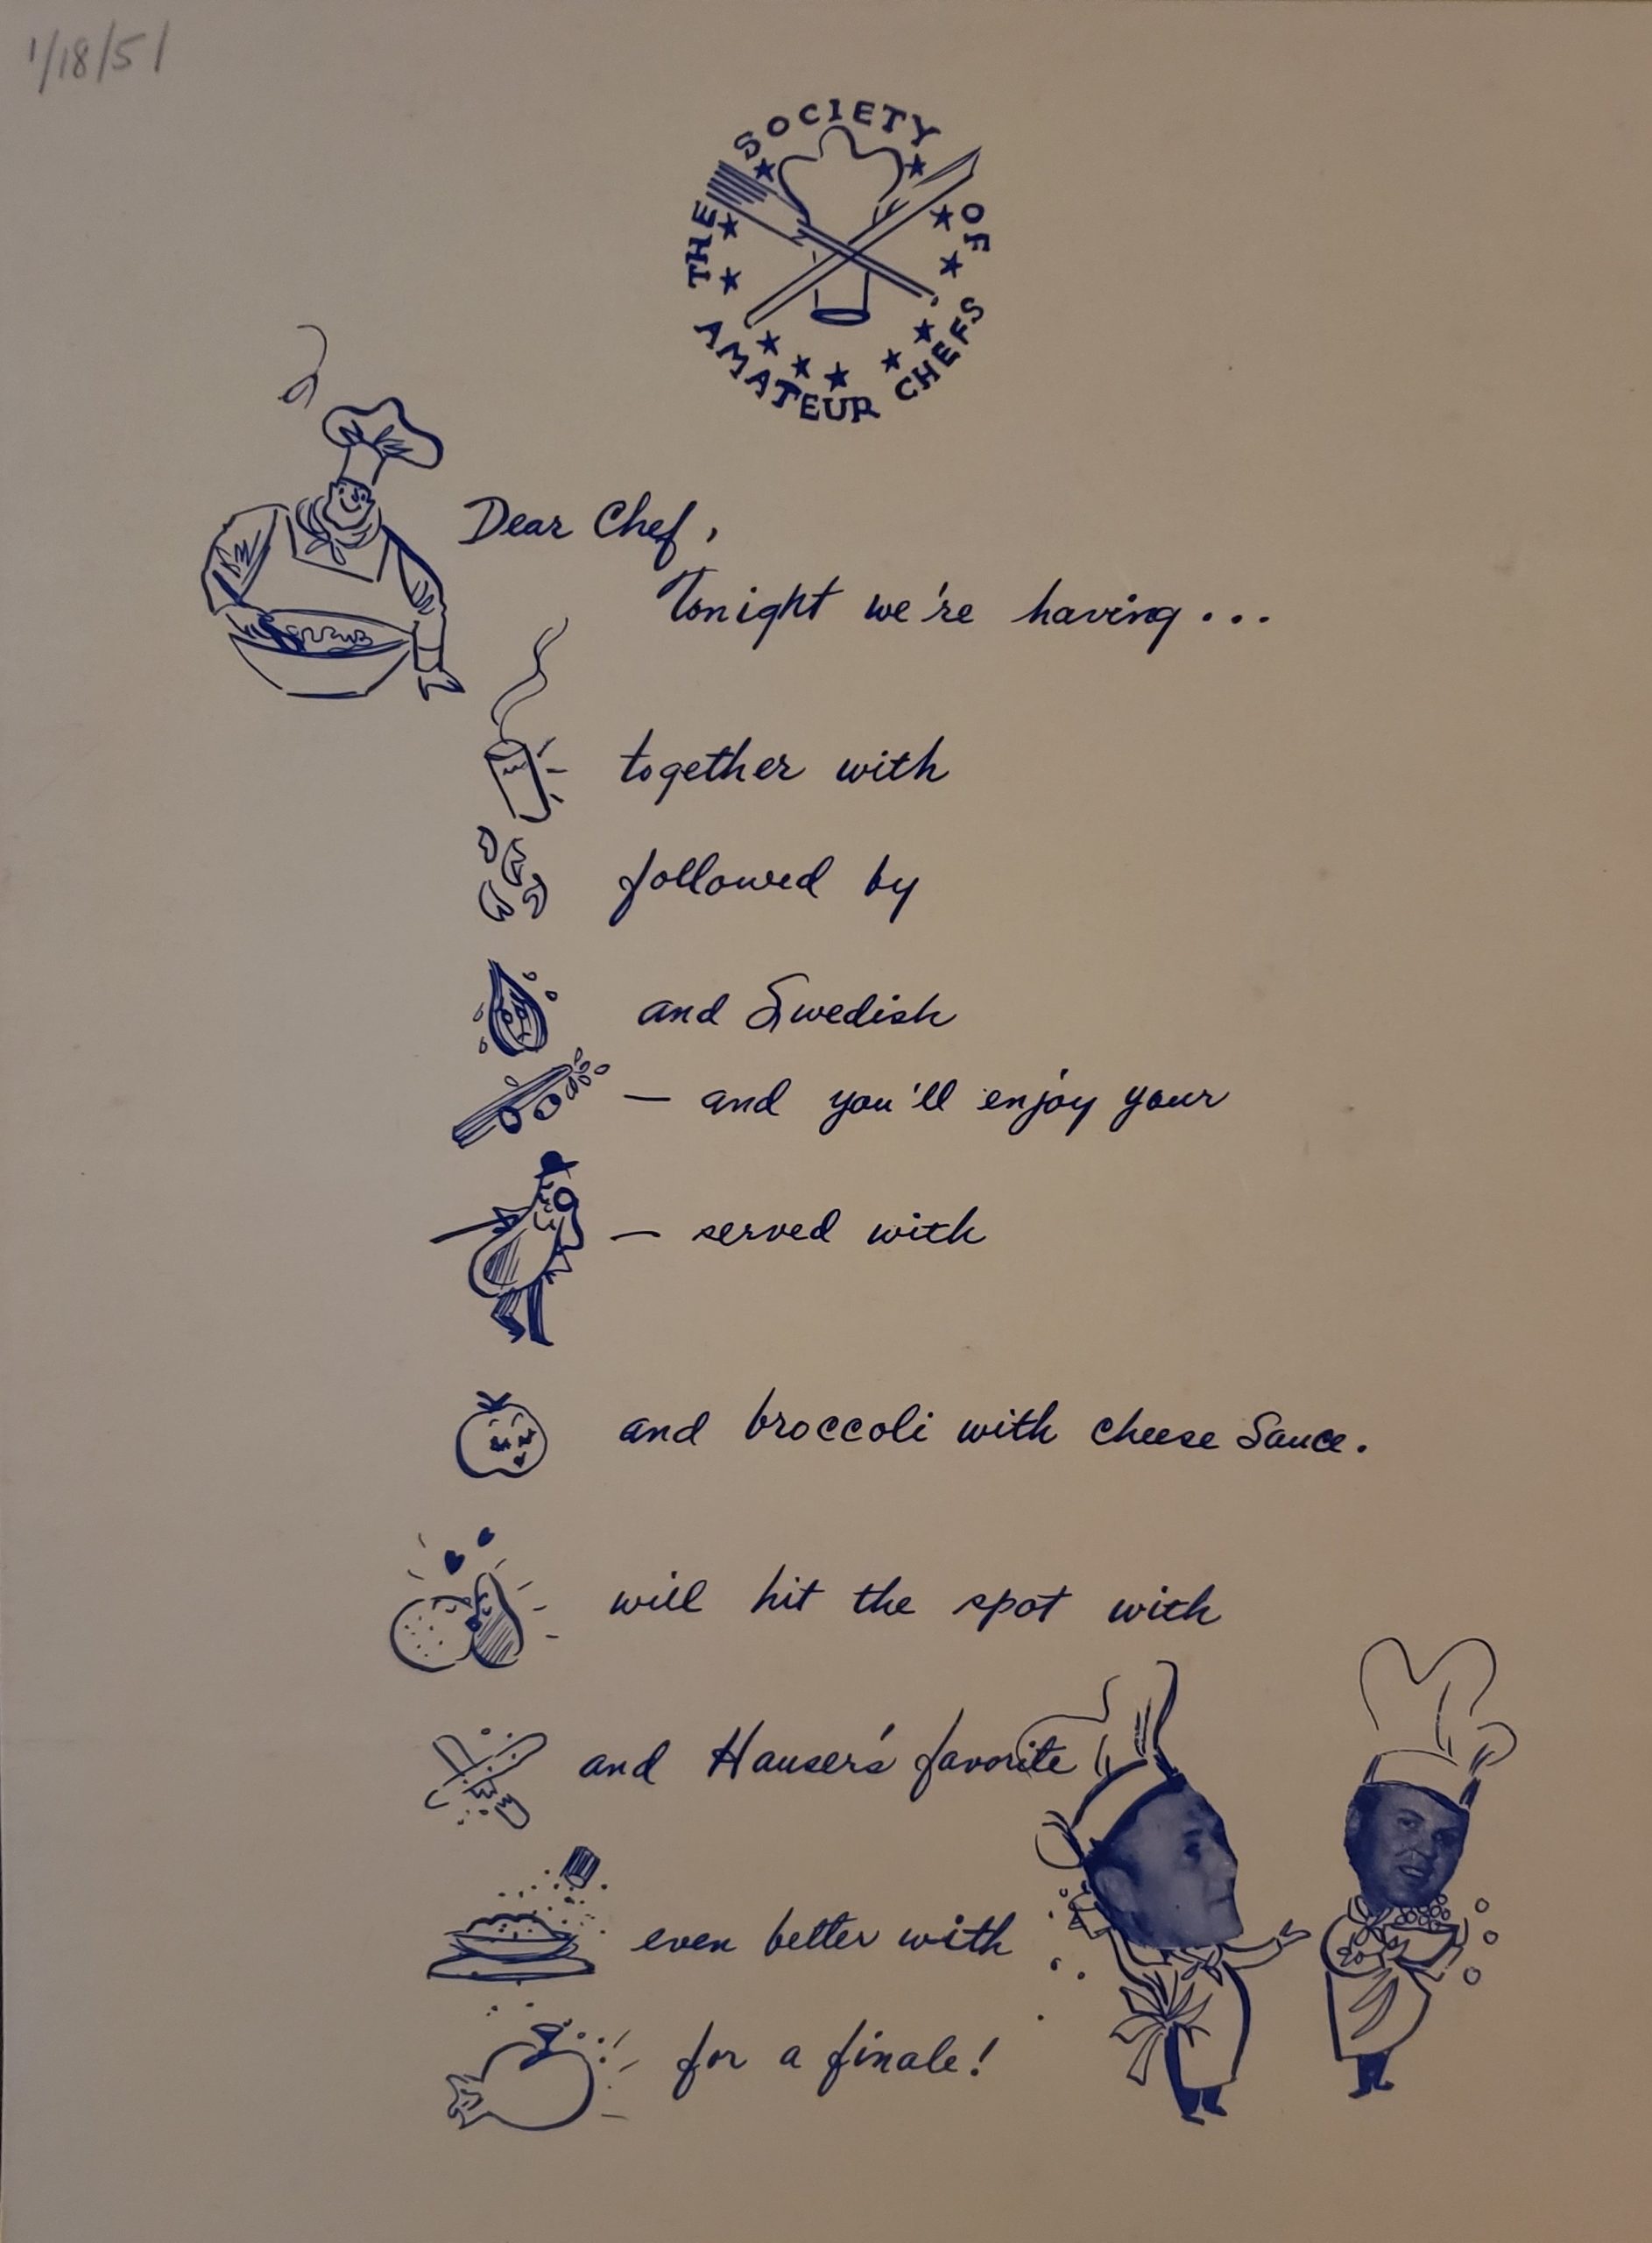 1/18/51
THE SOCIETY OF AMATEUR CHEFS
Dear Chef,
Tonight we're having...
together with
followed by
and Swedish
— and you'll enjoy your
— served with
and broccoli with cheese Sauce.
will hit the spot with
and Hauser's favorite
even better with
for a finale!